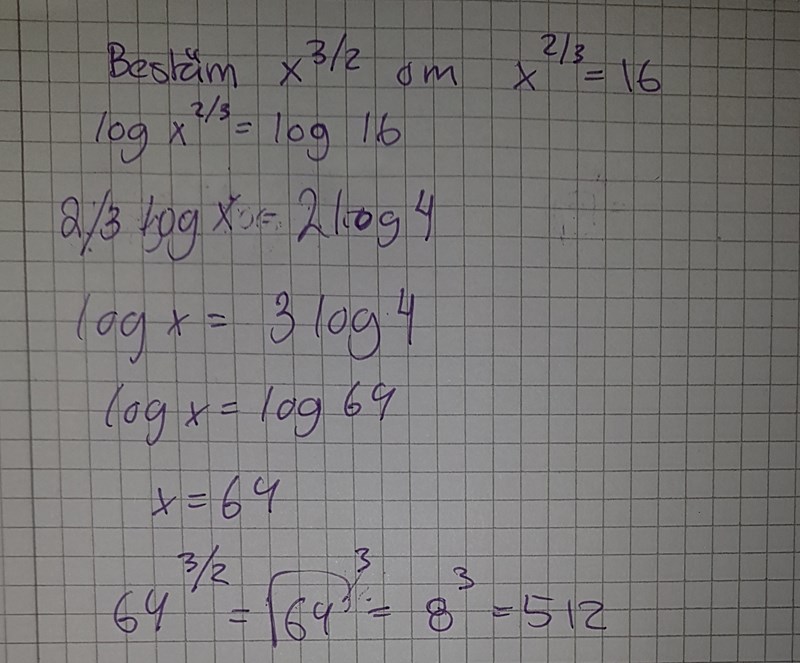 Bestäm x^3/2 om x^2/3 = 16
log x^2/3 = log 16
2/3 log x = 2 log 4
log x = 3 log 4
log x = log 64
x = 64
64^3/2 = √64^3 = 8^3 = 512